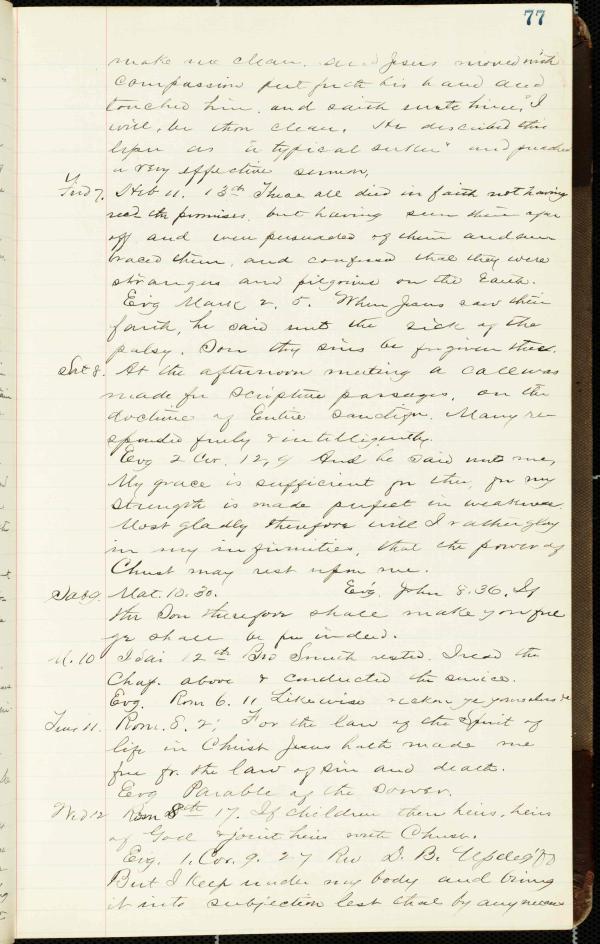 77
make me clean. And Jesus moved with
compassion put forth his hand and
touched him, and saith unto him, "I
will, be thou clean. He described this
leper as "a typical seeker" and preached
a very effective sermon.
Frid 7. Heb 11. 13th These all died in faith not having
recd the promises, but having seen them afar
off and were persuaded of them and em
braced them, and confessed that they were
strangers and pilgrims on the Earth.
Evg Mark 2. 5. When Jesus saw their
faith, he said unto the sick of the
palsy. Son thy sins be forgiven thee.
Sat 8. At the afternoon meeting a call was
made for scripture passages, on the
doctrine of Entire Sanctifn. Many re
sponded freely & intelligently.
Evg 2 Cor. 12, 9 And he said unto me,
My grace is sufficient for thee, for my
strength is made perfect in weakness.
Most gladly therefore will I rather glory
in my infirmities, that the power of
Christ may rest upon me.
Sab 9. Mat. 10. 30. Evg. John 8. 36. If
the Son therefore shall make you free
ye shall be free indeed.
M. 10 12th Bro Smith rested. I read the
Chap. above & conducted the service.
Evg. Rom 6. 11 Likewise reckon ye yourselves
Tues 11. Rom. 8. 2; For the law of the Spirit of
life in Christ Jesus hath made me
free fr. the law of sin and death.
Evg Parable of the Sower.
Wed 12 Rom 8th 17. If children then heirs, heirs
of God & joint heirs with Christ.
Evg. 1. Cor. 9. 27 Rev D. B. Updegff
But I keep under my body and bring
it into subjection lest that by any means